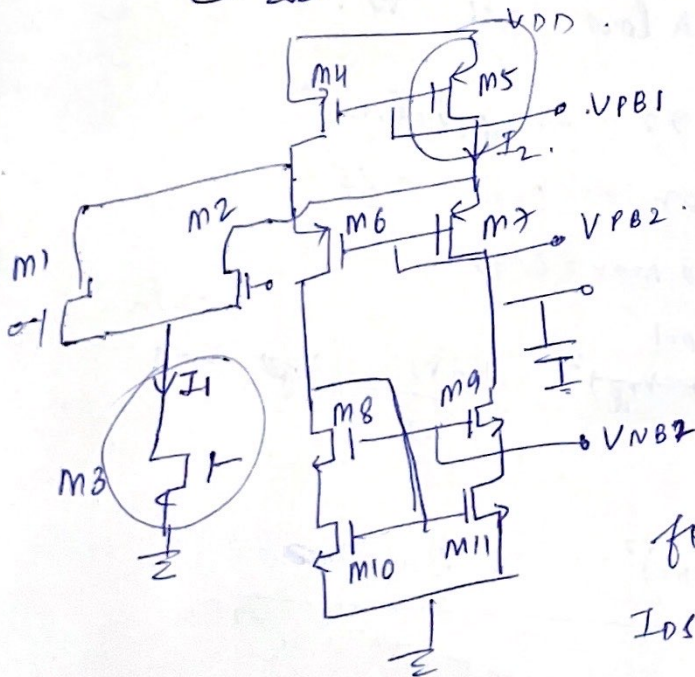 VDD .
M4
M5
.VPB1
I2.
M2
M6
M7
VPB2.
M1
I1
M8
M9
VNB2
M3
M10
M11
IDS